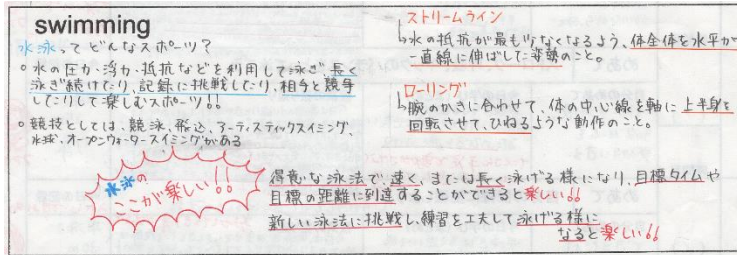 swimming
水泳ってどんなスポーツ？
○ 水の圧力・浮力・抵抗などを利用して泳ぎ、長く
泳ぎ続けたり、記録に挑戦したり、相手と競争
したりして楽しむスポーツ!!
○ 競技としては、競泳、飛込、アーティスティックスイミング、
水球、オープンウォータースイミングがある
水泳の
ここが楽しい!!
ストリームライン
↳水の抵抗が最も少なくなるよう、体全体を水平か
一直線に伸ばした姿勢のこと。
ローリング
↳腕のかきに合わせて、体の中心線を軸に上半身を
回転させて、ひねるような動作のこと。
得意な泳法で、速く、または長く泳げる様になり、目標タイムや
目標の距離に到達することができると楽しい!!
新しい泳法に挑戦し、練習を工夫して泳げる様に
なると楽しい!!